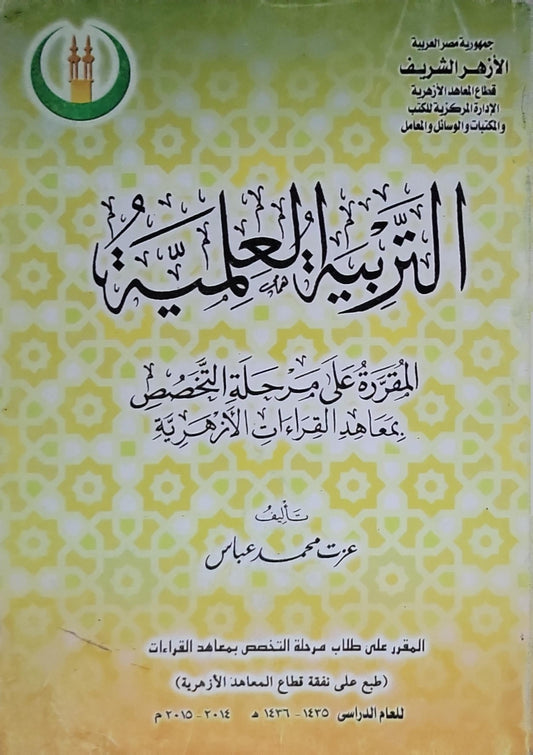 جمهورية مصر العربية
الأزهر الشريف
قطاع المعاهد الأزهرية
الإدارة المركزية للكتب
والمكتبات والوسائل والمعامل
التَّرْبِيَة العِلْمِيَّةُ
المُقَرَّرَةُ عَلَى مَرْحَلَةِ التَّخَصُّصِ
بِمَعَاهِدِ القِرَاءَاتِ الأَزْهَرِيَّةِ
تَأْلِيفُ
عزت محمد عباس
المقرر على طلاب مرحلة التخصص بمعاهد القراءات
(طبع على نفقة قطاع المعاهد الأزهرية)
للعام الدراسى ١٤٣٥ - ١٤٣٦ هـ ٢٠١٤ - ٢٠١٥ م